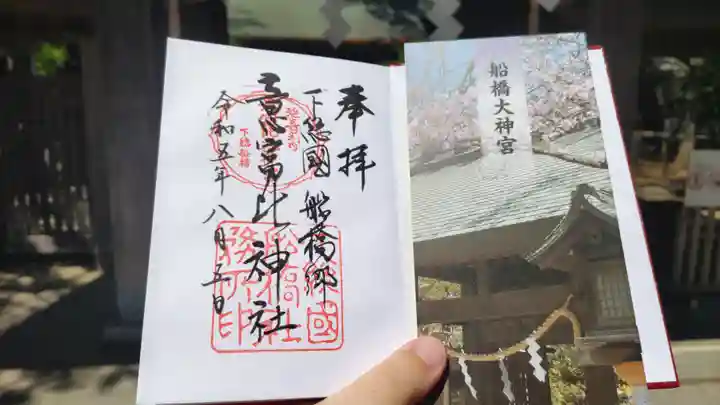 奉拝
下総國 船橋郷
意富比神社
令和五年八月五日
船橋大神宮